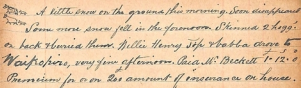 A little snow on the ground this morning. Soon disappeared
Some more snow fell in the forenoon. Skinned 2 hogg
on back & buried them. Nellie Henry Tof & bubba drove to
Waipoporo, very fine afternoon. Paid Mr Beckett 1-12-0
Premium for a on 200 amount of insurance on house.